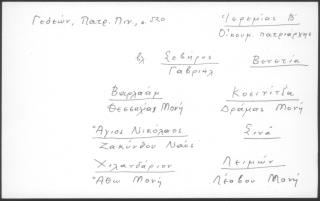 Γεδεών, Πατρ. Πιν., σ. 520
Ἱερεμίας Β΄
Οἰκουμ. πατριάρχης
βλ Σεβῆρος
Γαβριήλ
Βενετία
Βαρλαάμ
Θεσσαλίας Μονή
Κοσινίτζα
Δράμας Μονή
Ἅγιος Νικόλαος
Ζακύνθου Ναός
Σινᾶ
Χιλανδάριον
Ἄθω Μονή
Λειμών
Λέσβου Μονή